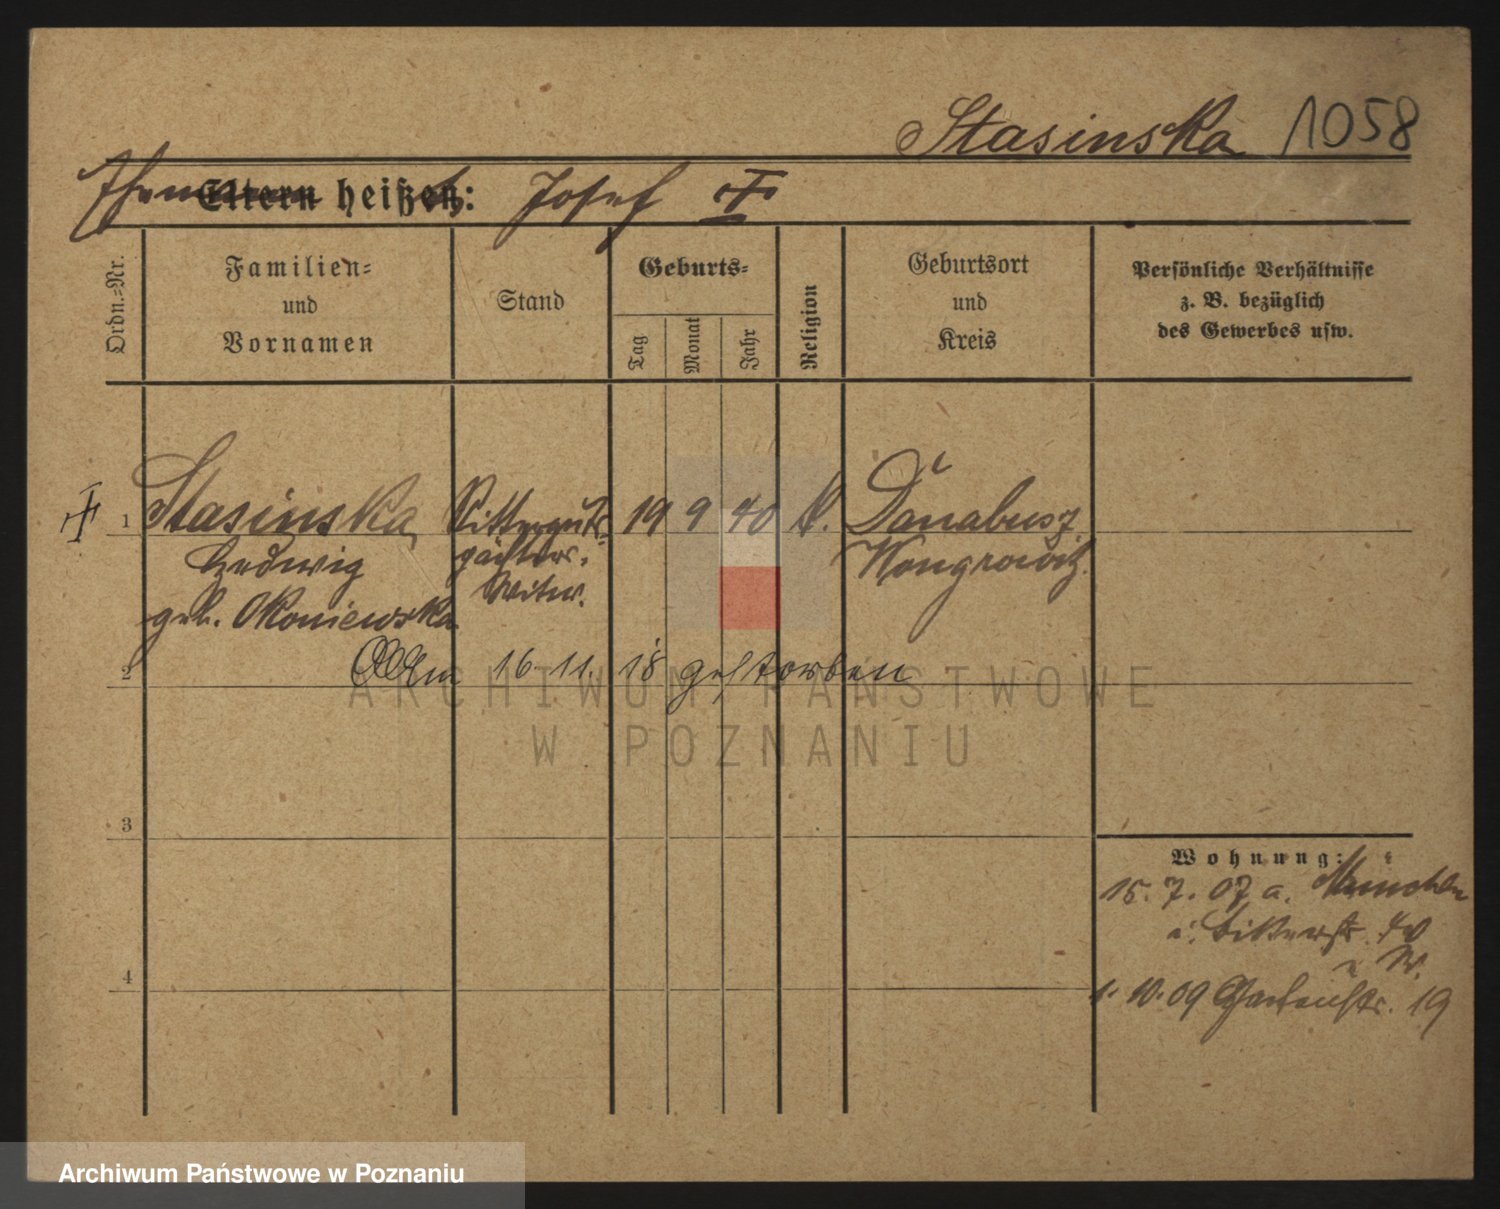 Stasinska 1058
Eltern heißen: Josef
Ordn.-Nr.
Familien-
und
Vornamen
Stand
Geburts-
Tag
Monat
Jahr
Religion
Geburtsort
und
Kreis
Persönliche Verhältnisse
z. B. bezüglich
des Gewerbes usw.
1 Stasinska Ritterguts- 19 9 40 k. Danabusz
Hedwig pächters- Wongrowitz
geb. Okoniewska Witw.
2 Am 16. 11. 18 gestorben
ARCHIWUM PAŃSTWOWE
W POZNANIU
3
Wohnung:
15. 7. 07 a. München
4
1. 10. 09 Gartenstr. 19
Archiwum Państwowe w Poznaniu